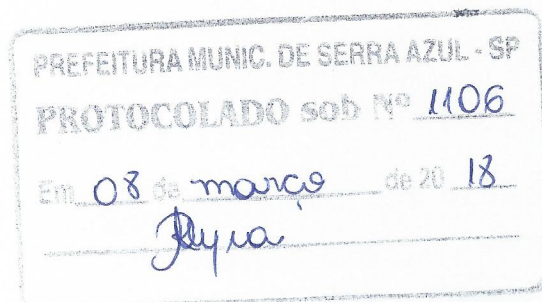 PREFEITURA MUNIC. DE SERRA AZUL - SP
PROTOCOLADO sob Nº 1106
Em 08 de março de 20 18